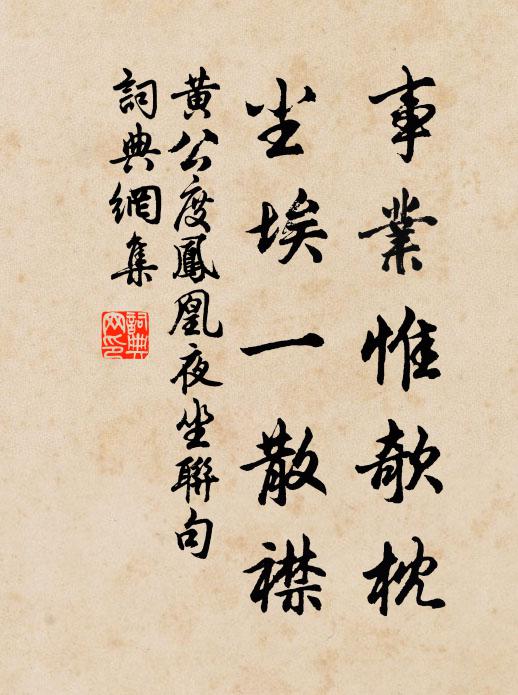 事業惟欹枕
尘埃一散襟
黃公度鳳凰夜坐聯句
詞典網集
詞典网印